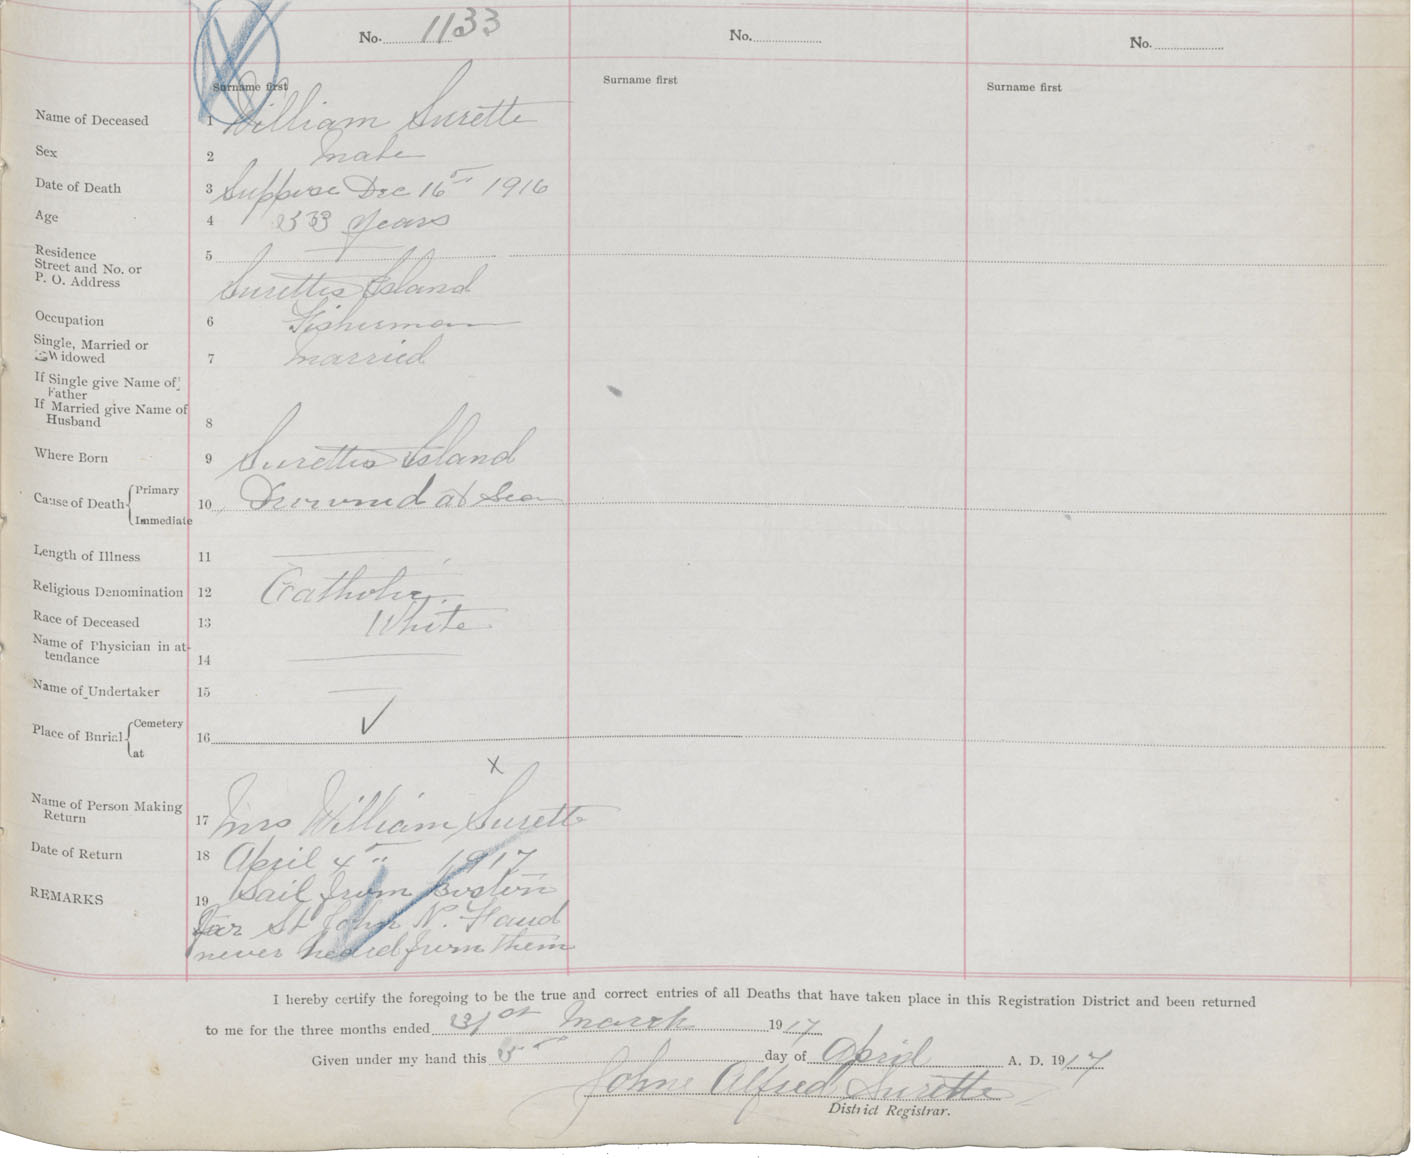 No. 1133
No.
No.
Surname first
Surname first
Surname first
Name of Deceased 1 William Surette
Sex 2 Male
Date of Death 3 Suppose Dec 16th 1916
Age 4 33 years
Residence 5
Street and No. or
P. O. Address Surettes Island
Occupation 6 Fisherman
Single, Married or
Widowed 7 Married
If Single give Name of
Father
If Married give Name of
Husband 8
Where Born 9 Surettes Island
Cause of Death { Primary
10 Drowned at Sea
Immediate
Length of Illness 11
Religious Denomination 12 Catholic
Race of Deceased 13 White
Name of Physician in at-
tendance 14
Name of Undertaker 15
Place of Burial { Cemetery
16
at
Name of Person Making
Return 17 Mrs William Surette
Date of Return 18 April 4th 1917
REMARKS 19 Sail from Boston
for St John N. Faud
never heard from them
I hereby certify the foregoing to be the true and correct entries of all Deaths that have taken place in this Registration District and been returned
to me for the three months ended 31st March 1917
Given under my hand this 5th day of April A. D. 1917
John Alfred Surette
District Registrar.